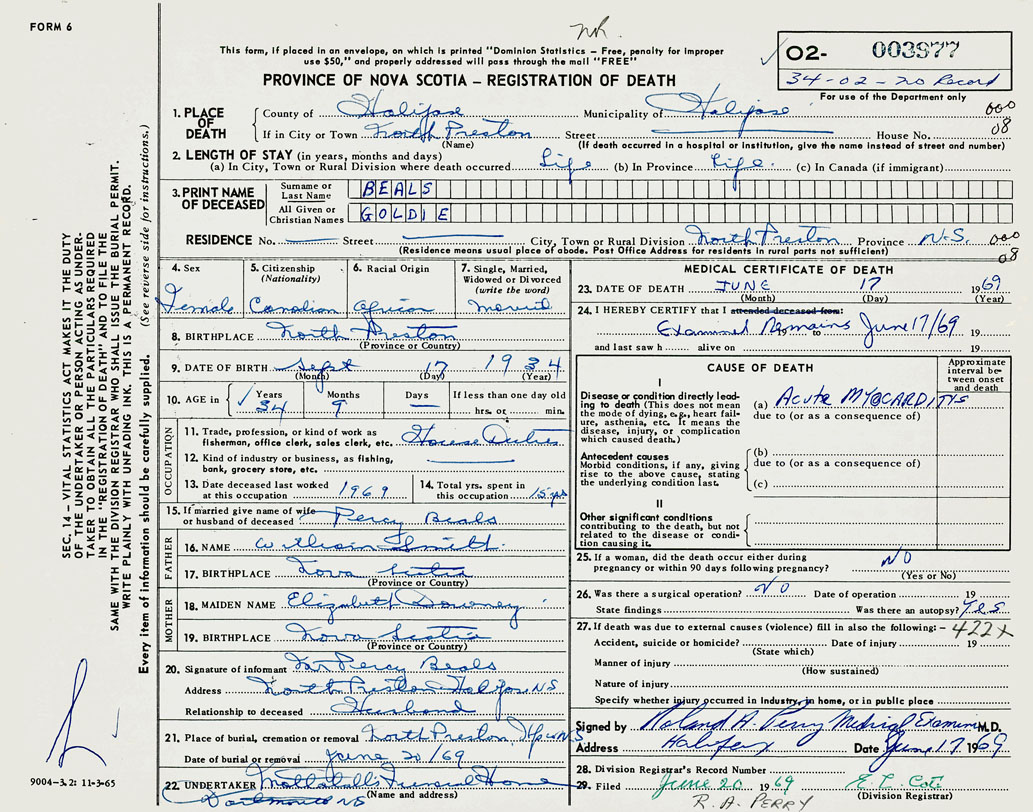 FORM 6
nh.
This form, if placed in an envelope, on which is printed "Dominion Statistics – Free, penalty for improper
use $50," and properly addressed will pass through the mail "FREE"
PROVINCE OF NOVA SCOTIA – REGISTRATION OF DEATH
✓ 02- 003977
34-02-20 Record
For use of the Department only
SEC. 14 – VITAL STATISTICS ACT MAKES IT THE DUTY
OF THE UNDERTAKER OR PERSON ACTING AS UNDER-
TAKER TO OBTAIN ALL THE PARTICULARS REQUIRED
IN THE "REGISTRATION OF DEATH" AND TO FILE THE
SAME WITH THE DIVISION REGISTRAR WHO SHALL ISSUE THE BURIAL PERMIT.
WRITE PLAINLY WITH UNFADING INK. THIS IS A PERMANENT RECORD.
Every item of information should be carefully supplied. (See reverse side for instructions.)
1. PLACE OF DEATH
County of Halifax Municipality of Halifax 000
If in City or Town North Preston Street House No. 08
(Name) (If death occurred in a hospital or institution, give the name instead of street and number)
2. LENGTH OF STAY (in years, months and days)
(a) In City, Town or Rural Division where death occurred Life (b) In Province Life. (c) In Canada (if immigrant)
3. PRINT NAME OF DECEASED
Surname or Last Name BEALS
All Given or Christian Names GOLDIE
RESIDENCE No. Street City, Town or Rural Division North Preston Province N.S. 000
(Residence means usual place of abode. Post Office Address for residents in rural parts not sufficient) 08
4. Sex
Female
5. Citizenship (Nationality)
Canadian
6. Racial Origin
African
7. Single, Married, Widowed or Divorced (write the word)
Married
8. BIRTHPLACE North Preston
(Province or Country)
9. DATE OF BIRTH Sept 17 1934
(Month) (Day) (Year)
10. AGE in ✓ Years 34 Months 9 Days — If less than one day old
hrs. or min.
OCCUPATION
11. Trade, profession, or kind of work as
fisherman, office clerk, sales clerk, etc. House Duties
12. Kind of industry or business, as fishing,
bank, grocery store, etc.
13. Date deceased last worked
at this occupation 1969
14. Total yrs. spent in
this occupation 15 yrs
15. If married give name of wife
or husband of deceased Percy Beals
FATHER
16. NAME William Smith
17. BIRTHPLACE Nova Scotia
(Province or Country)
MOTHER
18. MAIDEN NAME Elizabeth Downey
19. BIRTHPLACE Nova Scotia
(Province or Country)
20. Signature of informant Percy Beals
Address North Preston Halifax NS
Relationship to deceased Husband
21. Place of burial, cremation or removal North Preston, Hfx NS
Date of burial or removal June 20/69
22. UNDERTAKER Funeral Home
Dartmouth NS (Name and address)
9004–3.2: 11-3-65
MEDICAL CERTIFICATE OF DEATH
23. DATE OF DEATH JUNE 17 1969
(Month) (Day) (Year)
24. I HEREBY CERTIFY that I attended deceased from:
Examined Remains June 17/69 19
and last saw h alive on 19
CAUSE OF DEATH
Approximate interval between onset and death
I
Disease or condition directly lead-
ing to death (This does not
mean the mode of dying, e.g., heart fail-
ure, asthenia, etc. It means the
disease, injury, or complication
which caused death.)
(a) Acute MYOCARDITIS
due to (or as a consequence of)
Antecedent causes
Morbid conditions, if any, giving
rise to the above cause, stating
the underlying condition last.
(b)
due to (or as a consequence of)
(c)
II
Other significant conditions
contributing to the death, but not
related to the disease or condi-
tion causing it.
25. If a woman, did the death occur either during
pregnancy or within 90 days following pregnancy? NO
(Yes or No)
26. Was there a surgical operation? NO Date of operation 19
State findings Was there an autopsy? Yes
27. If death was due to external causes (violence) fill in also the following: – 422x
Accident, suicide or homicide? Date of injury 19
(State which)
Manner of injury
(How sustained)
Nature of injury
Specify whether injury occurred in Industry, in home, or in public place
Signed by Roland A. Perry Medical Examiner M.D.
Address Halifax Date June 17 1969
28. Division Registrar's Record Number
29. Filed June 20 1969 E. L. Cote
R. A. PERRY (Division Registrar)